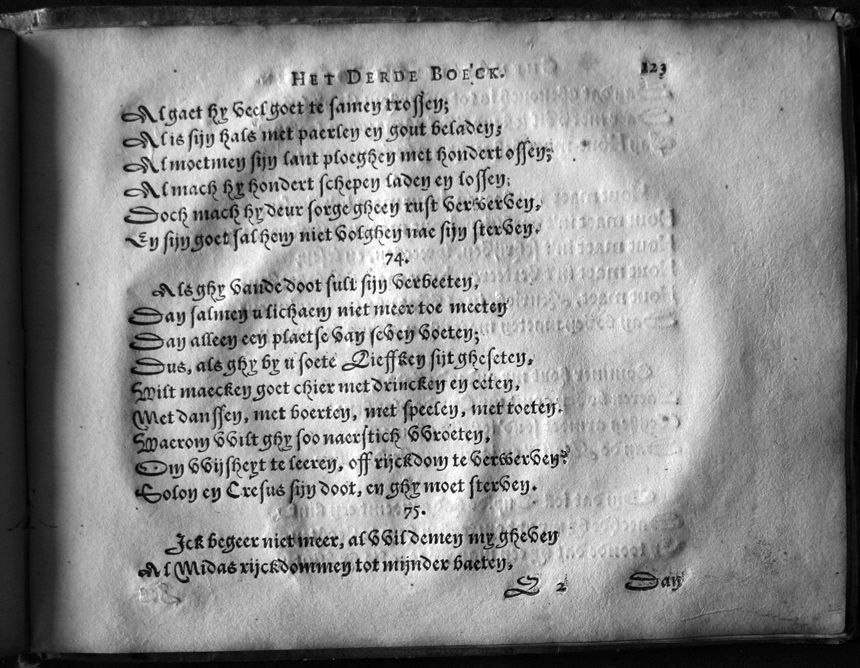 HET DERDE BOECK. 123
Al gaet hy veel goet te samen trossen;
Al is sijn hals met paerlen en gout beladen;
Al moetmen sijn lant ploeghen met hondert ossen;
Al mach hy hondert schepen laden en lossen;
Doch mach hy deur sorge gheen rust verwerven,
En sijn goet sal hem niet volghen nae sijn sterven.
74.
Als ghy vande doot sult sijn verbeeten,
Dan salmen u lichaem niet meer toe meeten
Dan alleen een plaetse van seven voeten;
Dus, als ghy by u soete Lieffken sijt gheseten,
Wilt maecken goet chier met drincken en eeten,
Met danssen, met boerten, met speelen, met toeten.
Waerom wilt ghy soo naerstich wroeten,
Om wijsheyt te leeren, off rijckdom te verwerven?
Solon en Cresus sijn doot, en ghy moet sterven.
75.
Ick begeer niet meer, al wildemen my gheven
Al Midas rijckdommen tot mijnder baeten,
Q 2 Dan